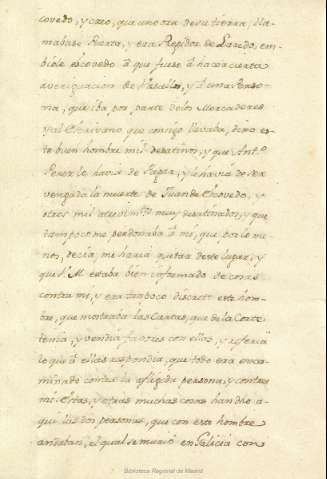 covedo, y creo, que uno era de su tierra, lla-
mabase Puerta, y era Regidor de Laredo, em-
biole escovedo â que fuese â hacer cierta
averiguacion de Vasallos, y â una Perso-
na, que iba por parte delos Mercaderes
y al Escrivano que consigo llevaba, dixo es-
te buen hombre mil desatinos, y que Ant.º
Perez lo havia de pagar, y le havia de ser
vengada la muerte de Juan de Escovedo, y
otros mil atrevim.tos muy desatinados, y que
tampoco me perdonaba â mi, que por lo me-
nos, decia, me haria quitar deste lugar, y
que S. M. estaba bien informado de cosas
contra mi, y era tampoco discreto este hom-
bre, que mostraba las Cartas, que de la Corte
tenia, y vendia favores con ellos, y referia
lo que â ellas respondia, que todo era enca-
minado contra la afligida persona, y contra
mi. Estas, y otras muchas cosas han dho a-
qui las dos personas, que con este hombre
andaban, el qual se murió en Galicia con
Biblioteca Regional de Madrid